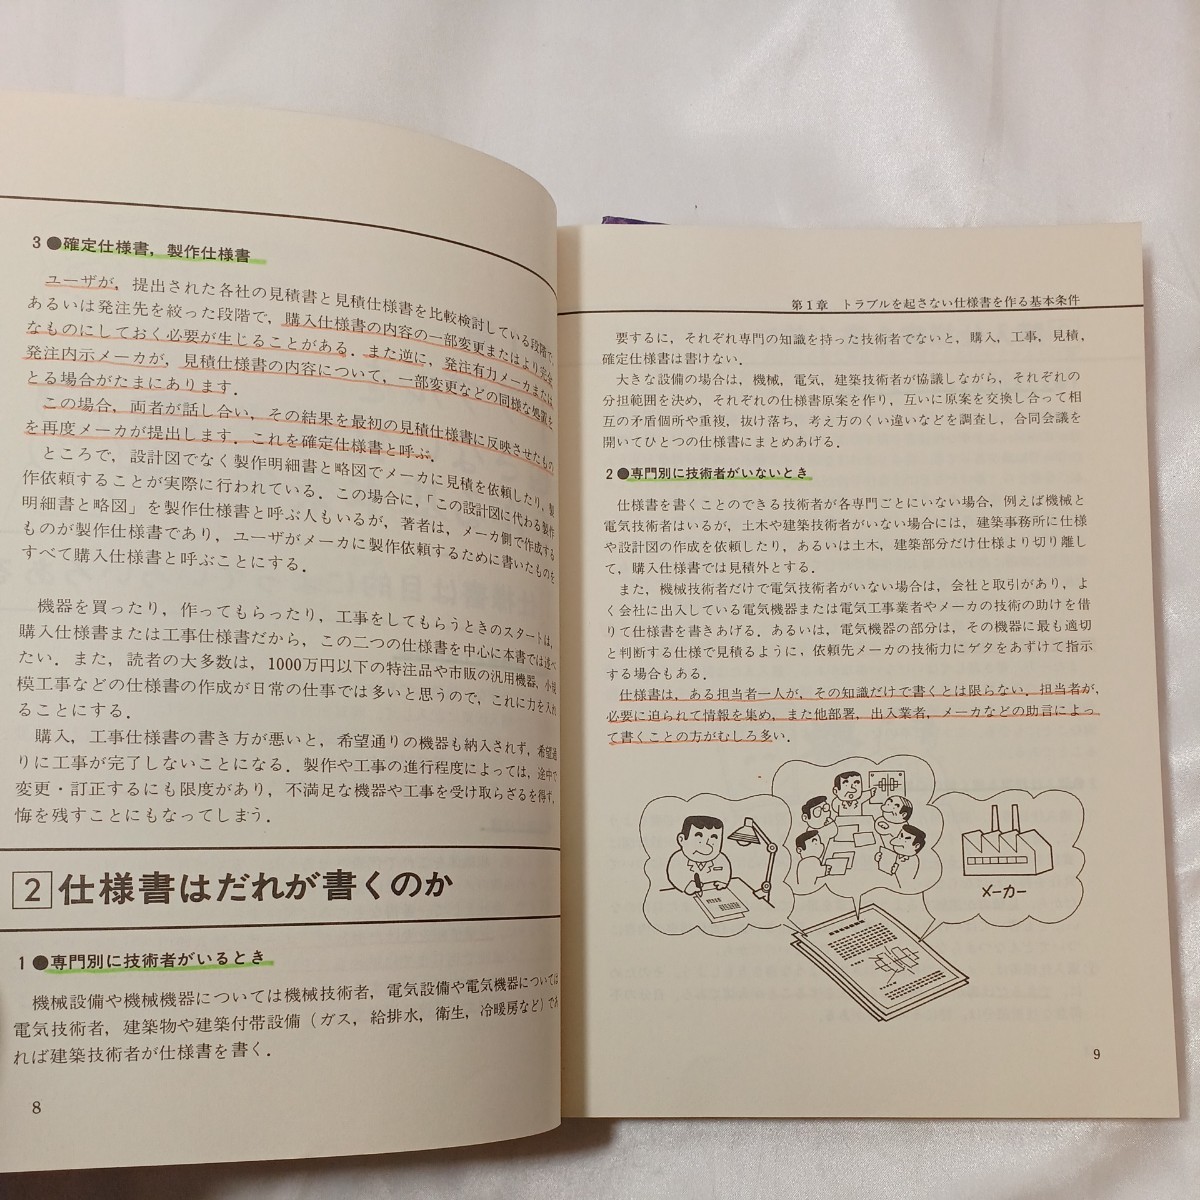 3●確定仕様書，製作仕様書
ユーザが，提出された各社の見積書と見積仕様書を比較検討している段階で，
あるいは発注先を絞った段階で，購入仕様書の内容の一部変更またはより完全
なものにしておく必要が生じることがある．また逆に，発注有力メーカまたは
発注内示メーカが，見積仕様書の内容について，一部変更などの同様な処置を
とる場合がたまにあります．
この場合，両者が話し合い，その結果を最初の見積仕様書に反映させたもの
を再度メーカが提出します．これを確定仕様書と呼ぶ．
ところで，設計図でなく製作明細書と略図でメーカに見積を依頼したり，製
作依頼することが実際に行われている．この場合に，「この設計図に代わる製作
明細書と略図」を製作仕様書と呼ぶ人もいるが，著者は，メーカ側で作成する
ものが製作仕様書であり，ユーザがメーカに製作依頼するために書いたものを
すべて購入仕様書と呼ぶことにする．
機器を買ったり，作ってもらったり，工事をしてもらうときのスタートは，
購入仕様書または工事仕様書だから，この二つの仕様書を中心に本書では述べ
たい．また，読者の大多数は，1000万円以下の特注品や市販の汎用機器，小規
模工事などの仕様書の作成が日常の仕事では多いと思うので，これに力を入れ
ることにする．
購入，工事仕様書の書き方が悪いと，希望通りの機器も納入されず，希望通
りに工事が完了しないことになる．製作や工事の進行程度によっては，途中で
変更・訂正するにも限度があり，不満足な機器や工事を受け取らざるを得ず，
悔を残すことにもなってしまう．
2 仕様書はだれが書くのか
1●専門別に技術者がいるとき
機械設備や機械機器については機械技術者，電気設備や電気機器については
電気技術者，建築物や建築付帯設備（ガス，給排水，衛生，冷暖房など）であ
れば建築技術者が仕様書を書く．
8
第1章　トラブルを起さない仕様書を作る基本条件
要するに，それぞれ専門の知識を持った技術者でないと，購入，工事，見積，
確定仕様書は書けない．
大きな設備の場合は，機械，電気，建築技術者が協議しながら，それぞれの
分担範囲を決め，それぞれの仕様書原案を作り，互いに原案を交換し合って相
互の矛盾個所や重複，抜け落ち，考え方のくい違いなどを調査し，合同会議を
開いてひとつの仕様書にまとめあげる．
2●専門別に技術者がいないとき
仕様書を書くことのできる技術者が各専門ごとにいない場合，例えば機械と
電気技術者はいるが，土木や建築技術者がいない場合には，建築事務所に仕様
や設計図の作成を依頼したり，あるいは土木，建築部分だけ仕様より切り離し
て，購入仕様書では見積外とする．
また，機械技術者だけで電気技術者がいない場合は，会社と取引があり，よ
く会社に出入している電気機器または電気工事業者やメーカの技術の助けを借
りて仕様書を書きあげる．あるいは，電気機器の部分は，その機器に最も適切
と判断する仕様で見積るように，依頼先メーカの技術力にゲタをあずけて指示
する場合もある．
仕様書は，ある担当者一人が，その知識だけで書くとは限らない．担当者が，
必要に迫られて情報を集め，また他部署，出入業者，メーカなどの助言によっ
て書くことの方がむしろ多い．
メーカー
9